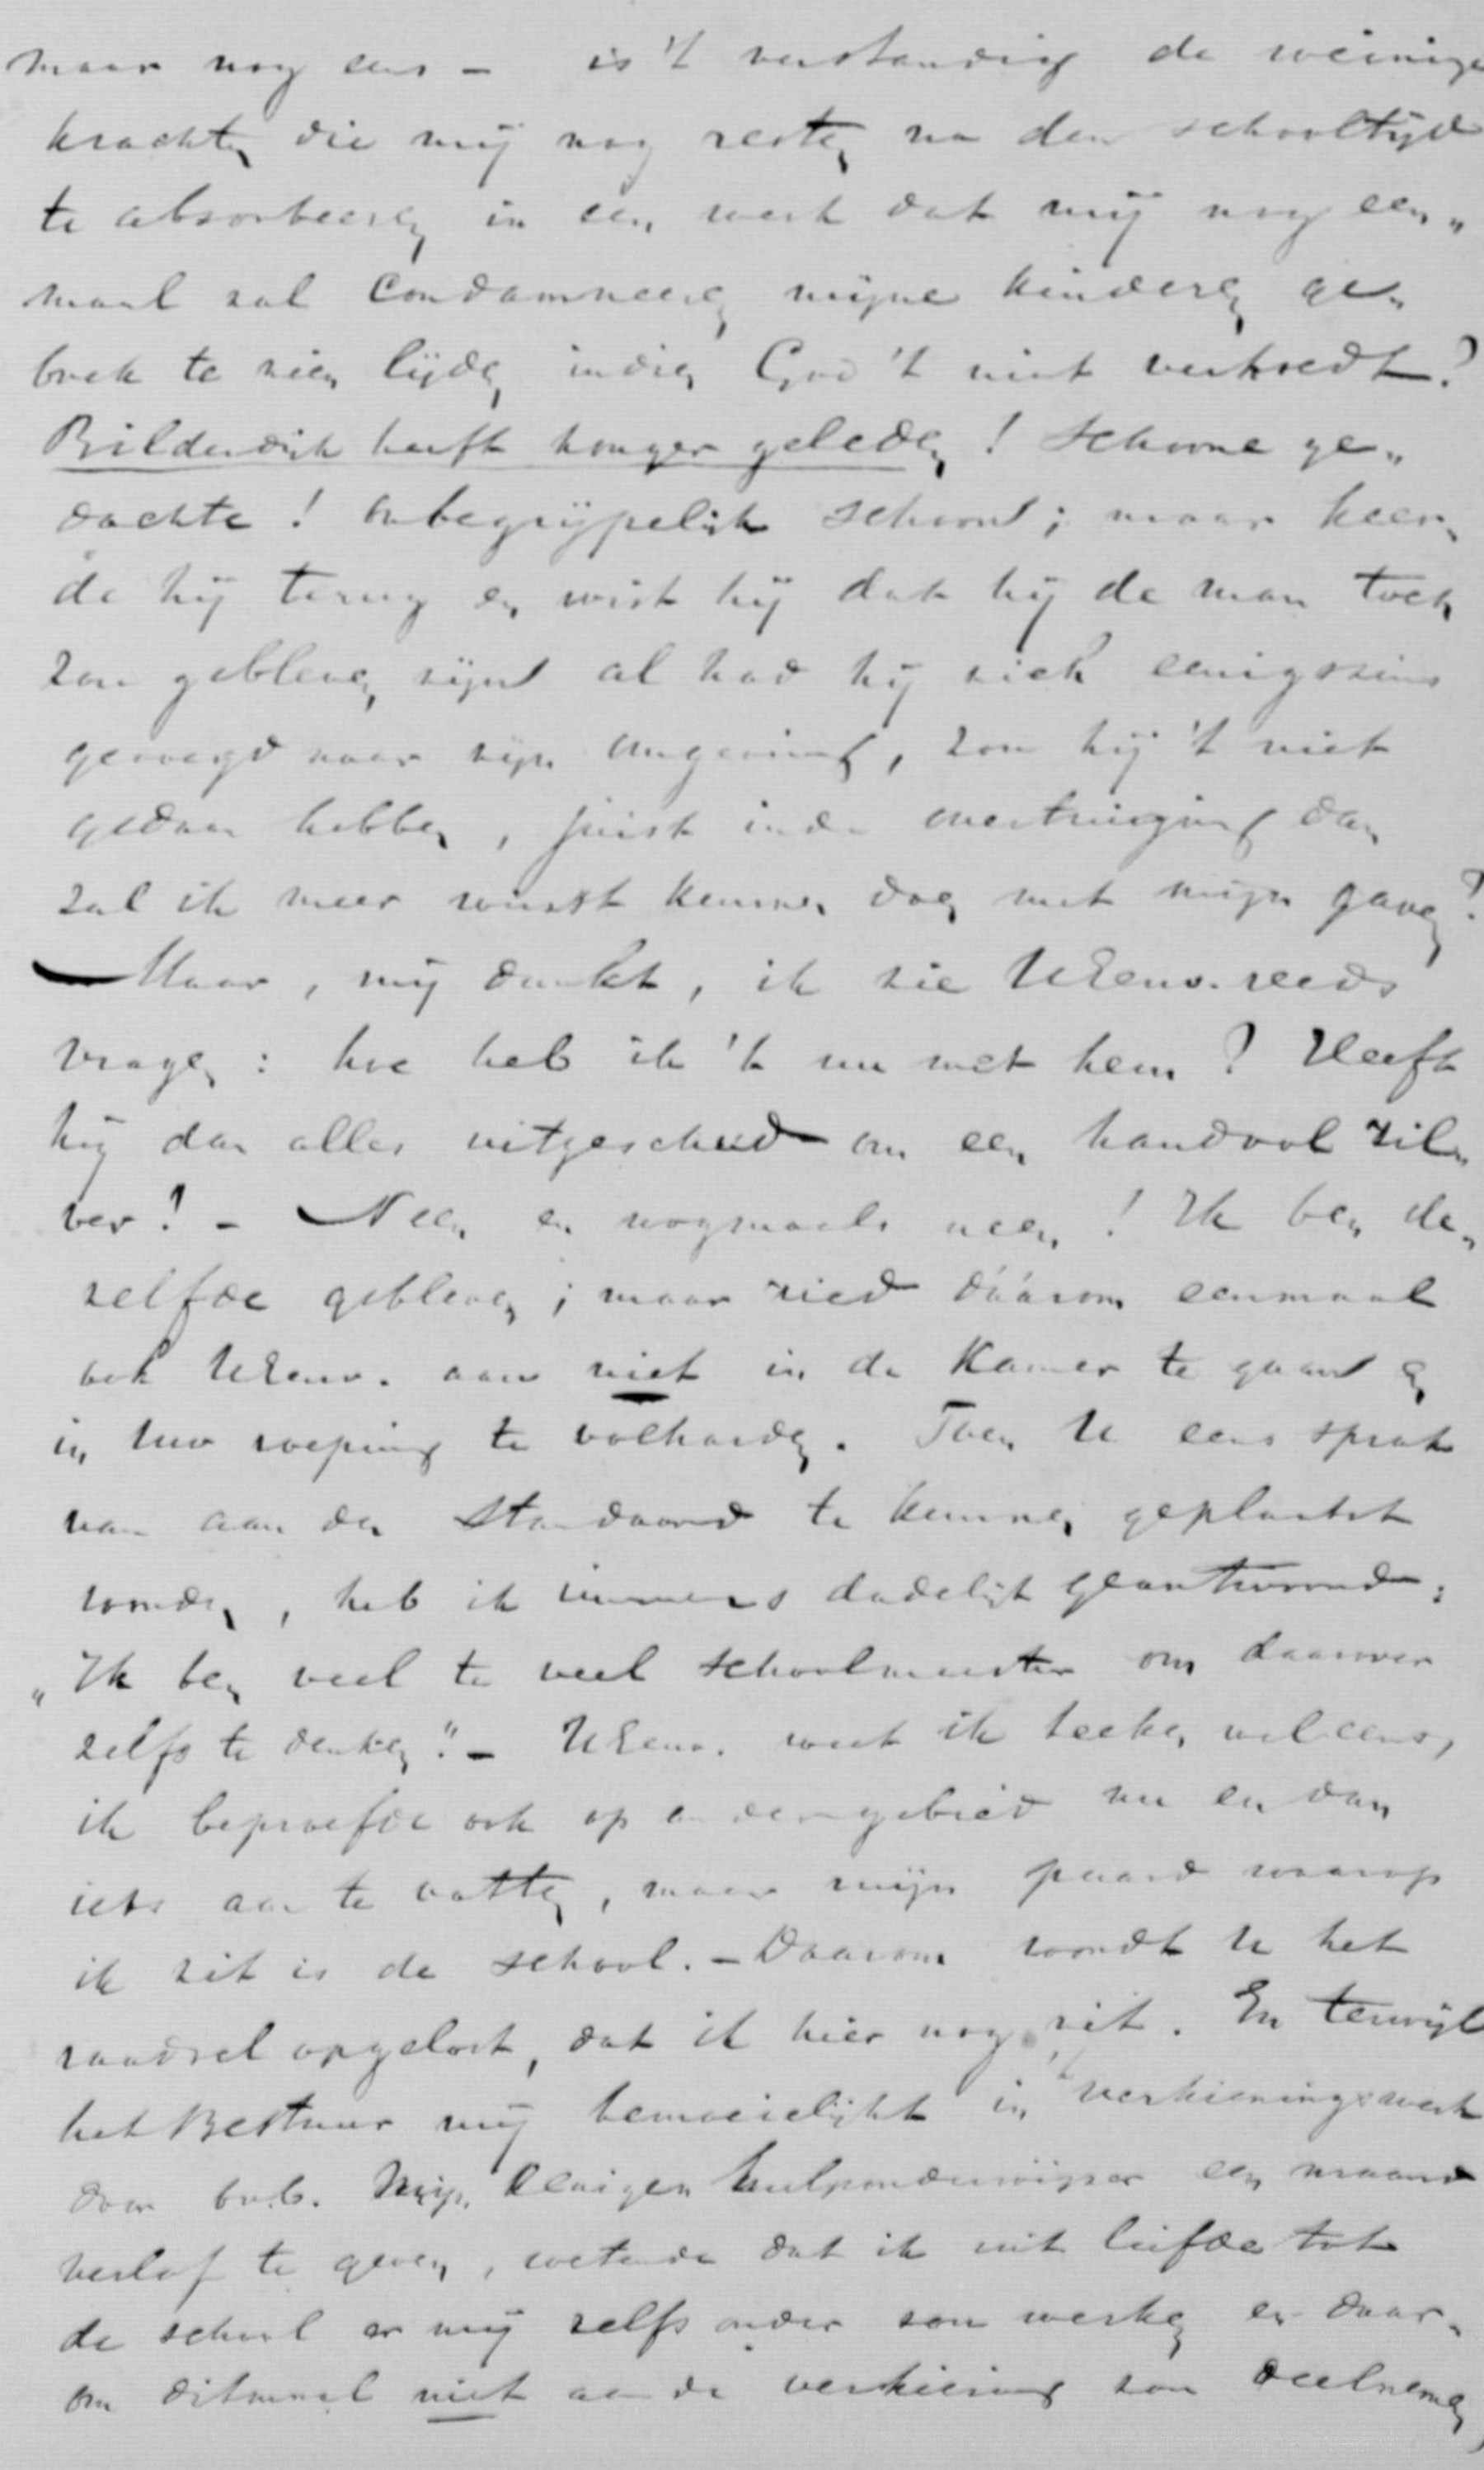 maar nog eens – is 't verstandig de weinige
krachten die mij nog resten na den schooltijd
te absorbeeren in een werk dat mij nog een„
maal zal condamneeren mijne kinderen ge„
brek te zien lijden indien God 't niet verhoedt?
Bilderdijk heeft honger geleden! Schoone ge„
dachte! onbegrijpelijk schoone; maar keer„
de hij terug en wist hij dat hij de man toch
zou gebleven zijn al had hij zich eenigszins
gevoegd naar zijn omgeving, zou hij 't niet
gedaan hebben, juist in de overtuiging dan
zal ik meer winst kunnen doen met mijn gaven?
– Maar, mij dunkt, ik zie UEerw. reeds
vragen: hoe heb ik 't nu met hem? Heeft
hij dan alles uitgeschud om een handvol zil„
ver! – Neen en nogmaals neen! Ik ben de„
zelfde gebleven; maar ried dáárom eenmaal
ook UEerw. aan niet in de Kamer te gaan en
in uw roeping te volharden. Toen U eens sprak
van aan den Standaard te kunnen geplaatst
worden, heb ik immers dadelijk geantwoord:
„Ik ben veel te veel schoolmeester om daarover
zelfs te denken." – UEerw. weet ik teeken wel eens,
ik beproefde ook op ander gebied nu en dan
iets aan te vatten, maar mijn paard waarop
ik zit is de school. – Daarom wordt U het
raadsel opgelost, dat ik hier nog zit. En terwijl
het Bestuur mij bemoeielijkt in 't verkiezingswerk
door bv.b. mijn eenigen hulponderwijzer een maand
verlof te geven, wetende dat ik uit liefde tot
de school er mij zelfs onder zou werken en daar„
om ditmaal niet aan de verkiezing zou deelnemen,